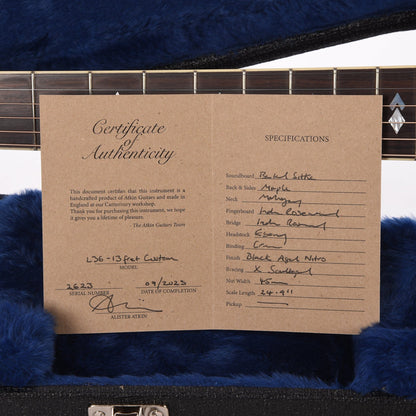 Certificate
of
Authenticity
This document certifies that this instrument is a
handcrafted product of Atkin Guitars and made in
England at our Canterbury workshop.
Thank you for purchasing this instrument, we hope
it gives you a lifetime of pleasure.
- The Atkin Guitars Team
L36 - 13 Fret Custom
MODEL
2623 09/2023
SERIAL NUMBER DATE OF COMPLETION
ALISTER ATKIN
SPECIFICATIONS
Soundboard Baked Sitka
Back & Sides Maple
Neck Mahogany
Fingerboard Indn Rosewood
Bridge Indn Rosewood
Headstock Ebony
Binding
Finish Black Aged Nitro
Bracing X Scalloped
Nut Width 45mm
Scale Length 24.9"
Pickup —